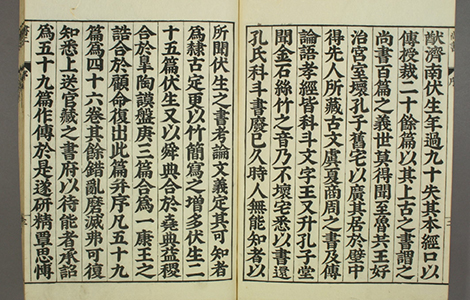 猷濟南伏生年過九十失其本經口以
傳授裁二十餘篇以其上古之書謂之
尚書百篇之義世莫得聞至魯共王好
治宮室壞孔子舊宅以廣其居於壁中
得先人所藏古文虞夏商周之書及傳
論語孝經皆科斗文字王又升孔子堂
聞金石絲竹之音乃不壞宅悉以書還
孔氏科斗書廢已久時人無能知者以
所聞伏生之書考論文義定其可知者
為隸古定更以竹簡寫之增多伏生二
十五篇伏生又以舜典合於堯典益稷
合於皋陶謨盤庚三篇合為一康王之
誥合於顧命復出此篇并序凡五十九
篇為四十六卷其餘錯亂磨滅弗可復
知悉上送官藏之書府以待能者承詔
為五十九篇作傳於是遂研精覃思博